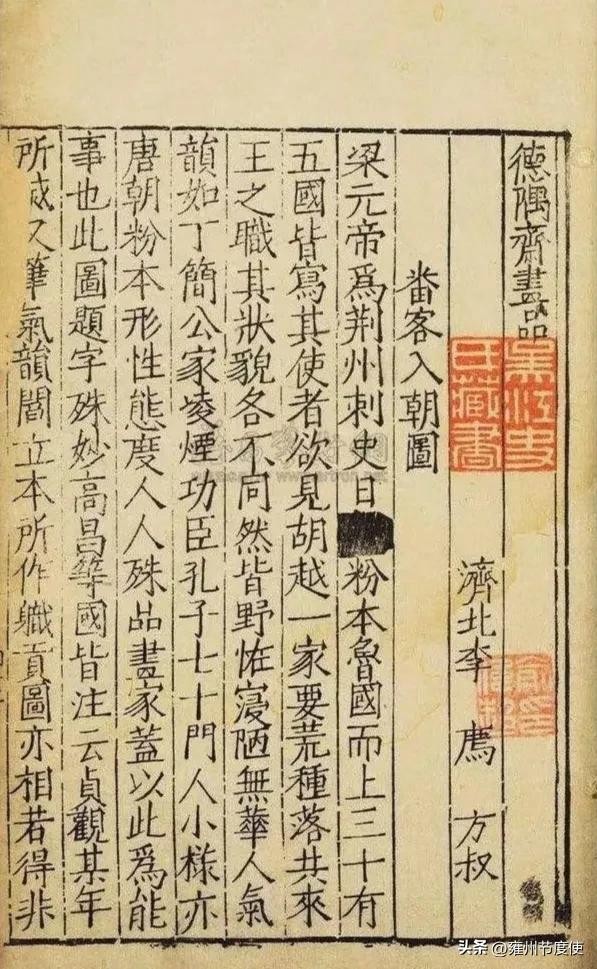 德隅齋畫品
吳江史
氏藏書
濟北李 廌 方叔
番客入朝圖
梁元帝爲荆州刺史日 粉本魯國而上三十有
五國皆寫其使者欲見胡越一家要荒種落共來
王之職其狀貌各不同然皆野怪寢陋無華人氣
韻如丁簡公家凌煙功臣孔子七十門人小様亦
唐朝粉本形性態度人人殊品畫家蓋以此爲能
事也此圖題字殊妙髙昌等國皆注云貞觀某年
所 又筆氣韻閻立本所作職貢圖亦相若得非
头条 @雍州节度使